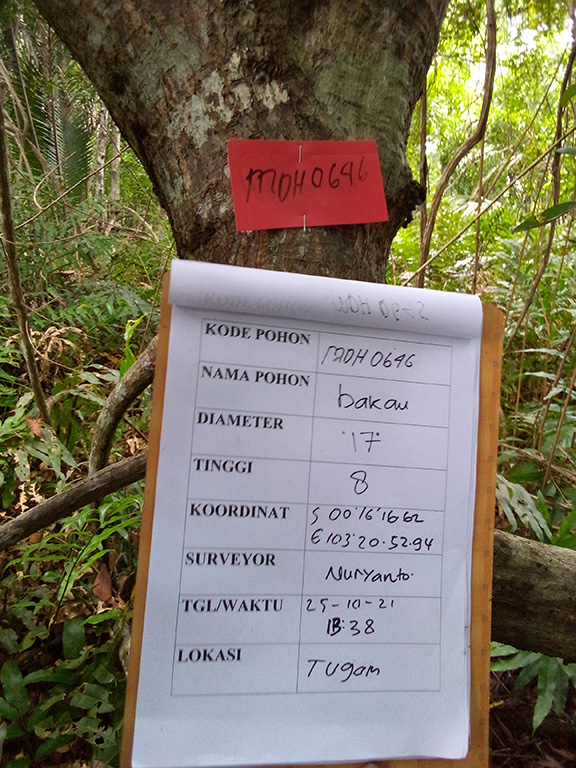 MDH0646
KODE POHON MDH0646
NAMA POHON bakau
DIAMETER 17
TINGGI 8
KOORDINAT S 00°16'16.62
E 103°20.52.94
SURVEYOR Nuryanto.
TGL/WAKTU 25-10-21
13:38
LOKASI Tugam